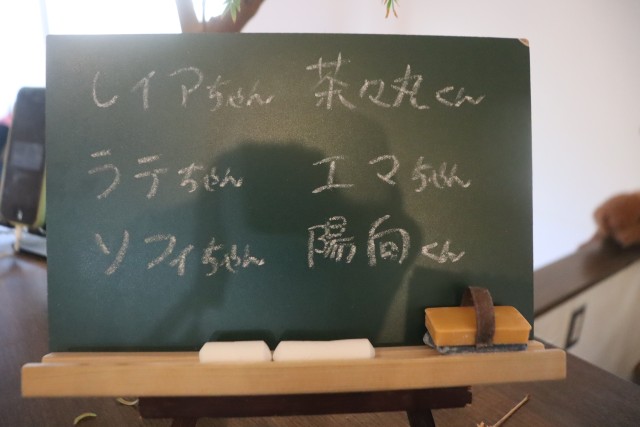 レイアちゃん 茶々丸くん
ラテちゃん エマちゃん
ソフィちゃん 陽向くん